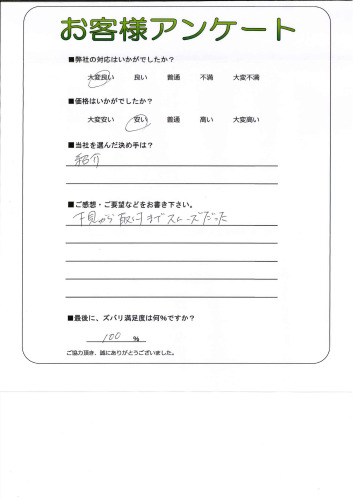 お客様アンケート
■弊社の対応はいかがでしたか？
大変良い 良い 普通 不満 大変不満
■価格はいかがでしたか？
大変安い 安い 普通 高い 大変高い
■当社を選んだ決め手は？
紹介
■ご感想・ご要望などをお書き下さい。
下見から取付までスムーズだった
■最後に、ズバリ満足度は何%ですか？
100 %
ご協力頂き、誠にありがとうございました。